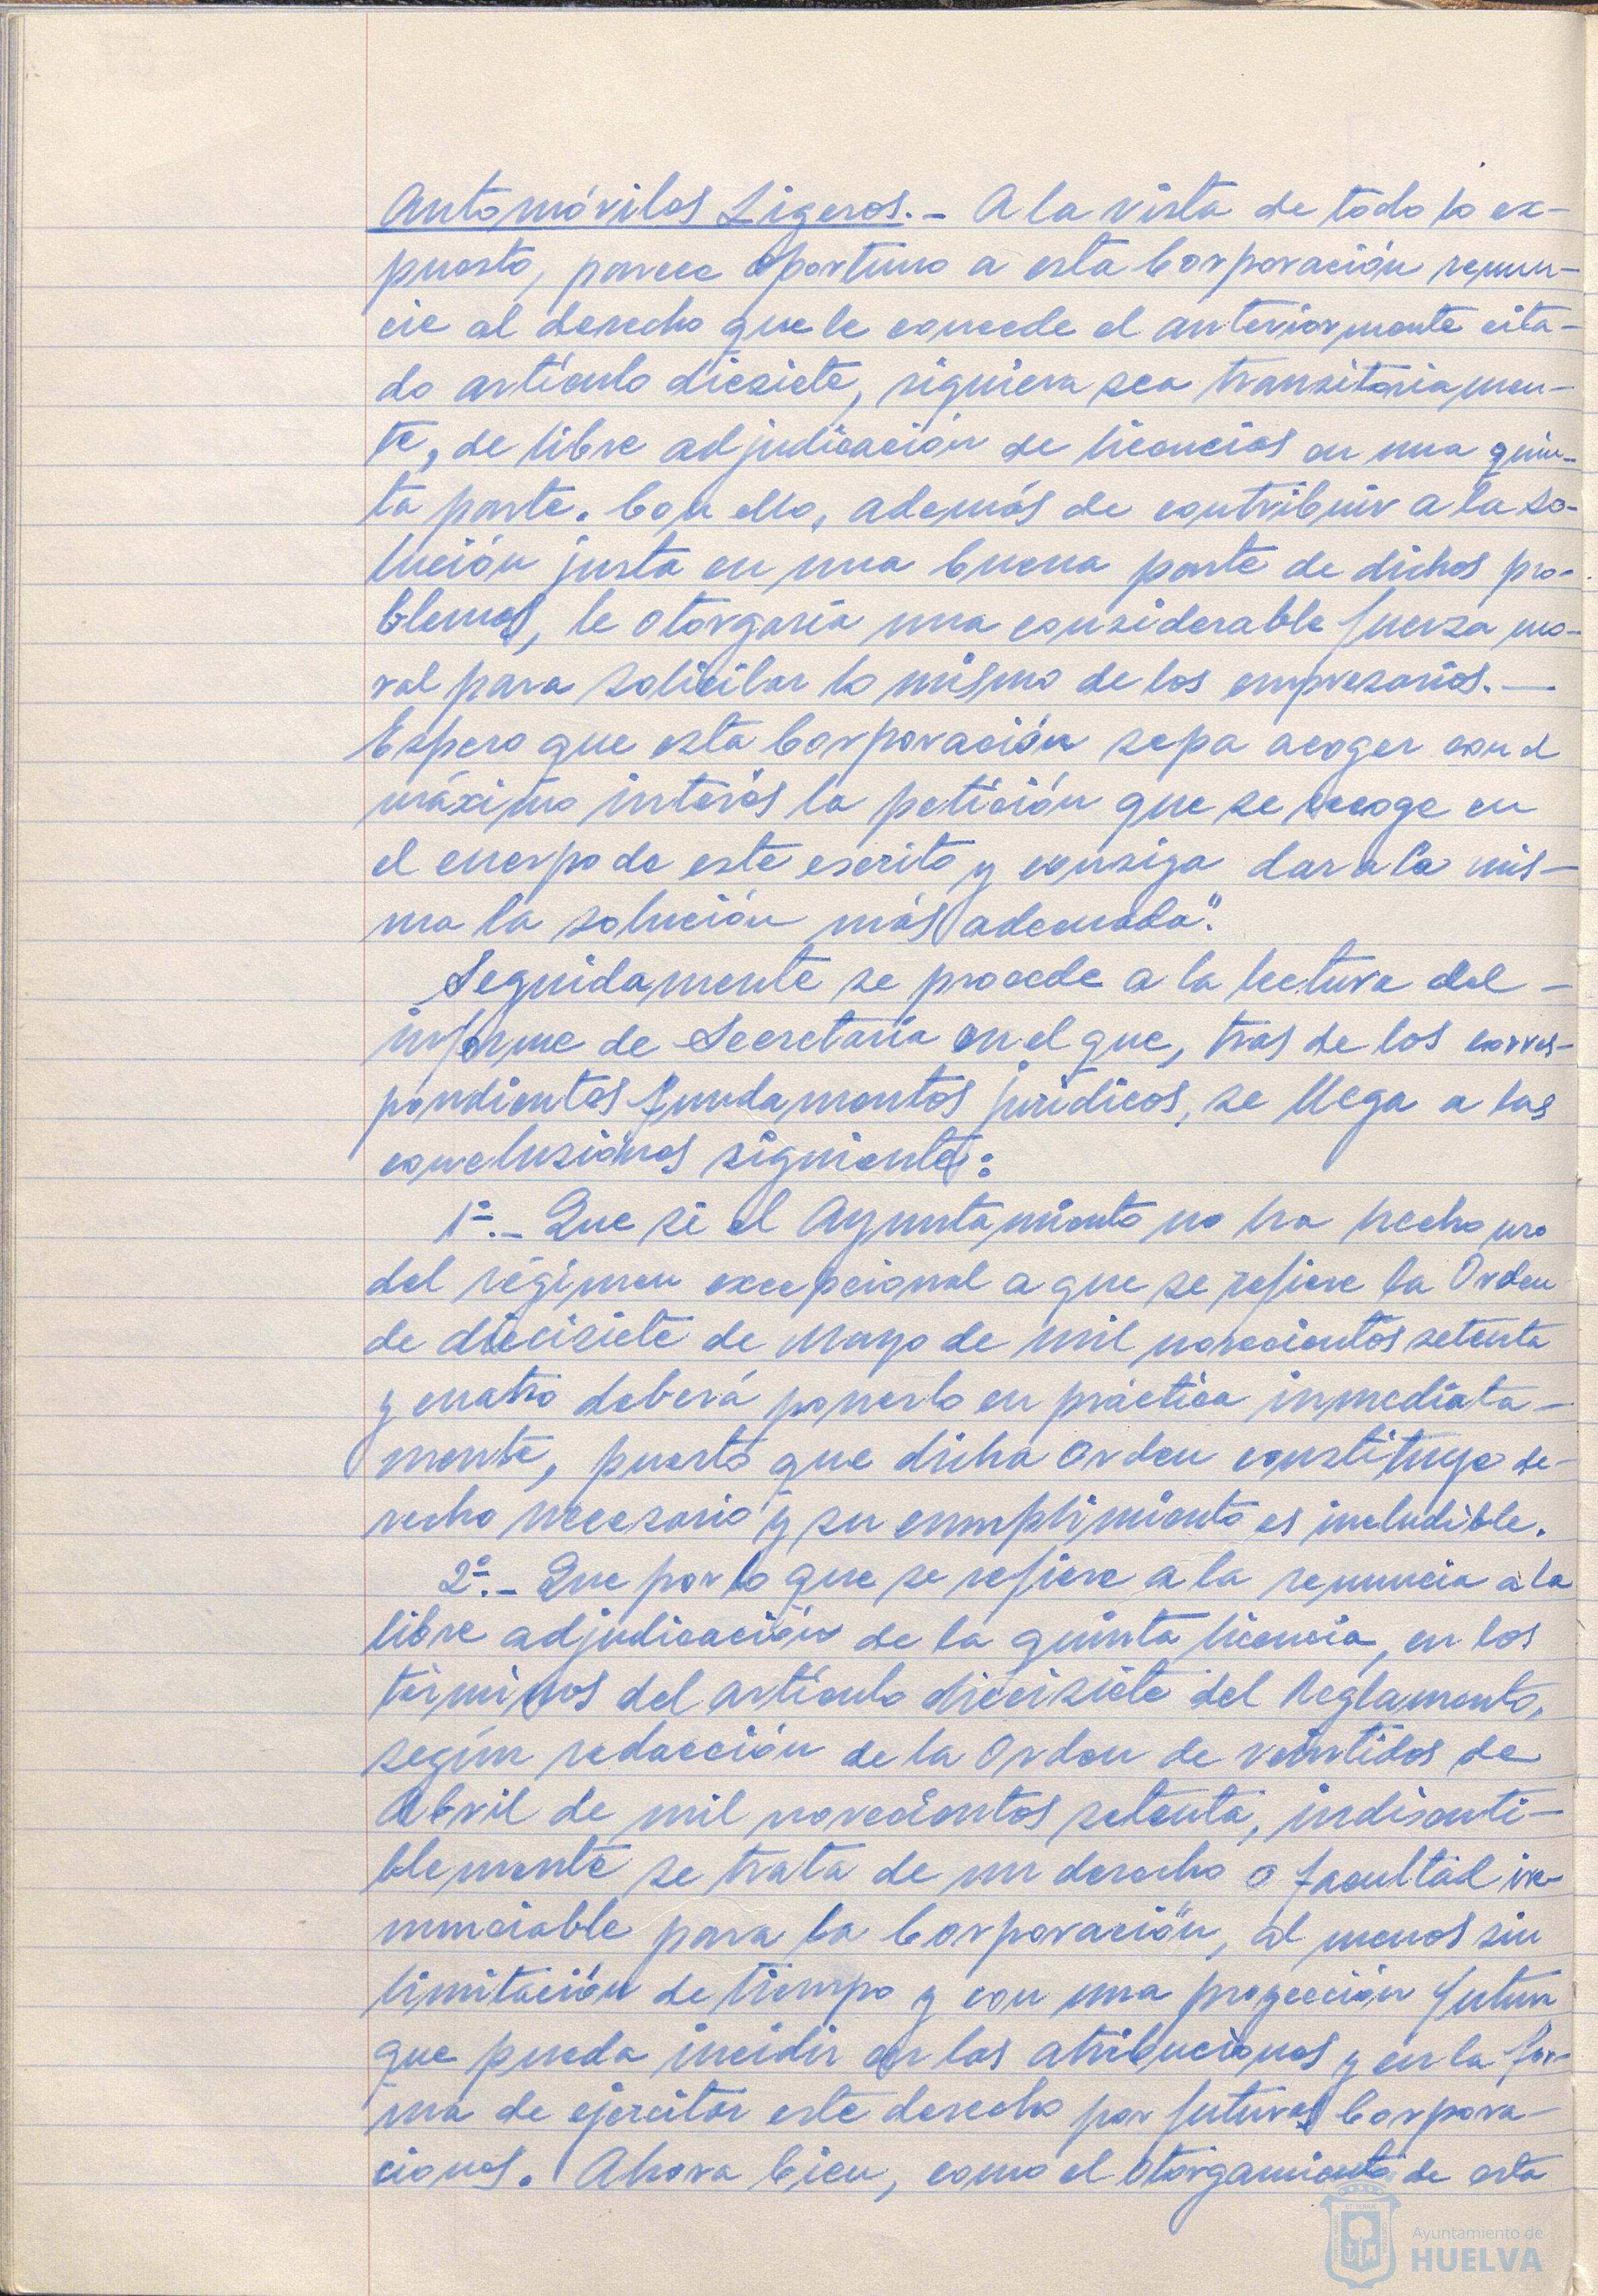 Automóviles Ligeros.- A la vista de todo lo ex-
puesto, parece oportuno a esta Corporación renun-
cie al derecho que le concede el anteriormente cita-
do artículo diesiete, siquiera sea transitoriamen-
te, de libre adjudicación de licencias en una quin-
ta parte. Con ello, además de contribuir a la so-
lución justa en una buena parte de dichos pro-
blemas, le otorgaría una considerable fuerza mo-
ral para solicitar lo mismo de los empresarios.—
Espero que esta Corporación sepa acoger con el
máximo interés la petición que se recoge en
el cuerpo de este escrito y consiga dar a la mis-
ma la solución más adecuada".
Seguidamente se procede a la lectura del -
informe de Secretaría en el que, tras de los corres-
pondientes fundamentos jurídicos, se llega a las
conclusiones siguientes:
1º.- Que si el Ayuntamiento no ha hecho uso
del régimen excepcional a que se refiere la Orden
de diecisiete de Mayo de mil novecientos setenta
y cuatro deberá ponerlo en práctica inmediata-
mente, puesto que dicha Orden constituye de-
recho necesario y su cumplimiento es ineludible.
2º.- Que por lo que se refiere a la renuncia a la
libre adjudicación de la quinta licencia, en los
términos del artículo diecisiete del Reglamento,
según redacción de la Orden de veintidos de
Abril de mil novecientos setenta, indiscuti-
blemente se trata de un derecho o facultad irre-
nunciable para la Corporación, al menos sin
limitación de tiempo y con una proyección futura
que pueda incidir en las atribuciones y en la for-
ma de ejercitar este derecho por futuras Corpora-
ciones. Ahora bien, como el otorgamiento de esta
Ayuntamiento de
HUELVA